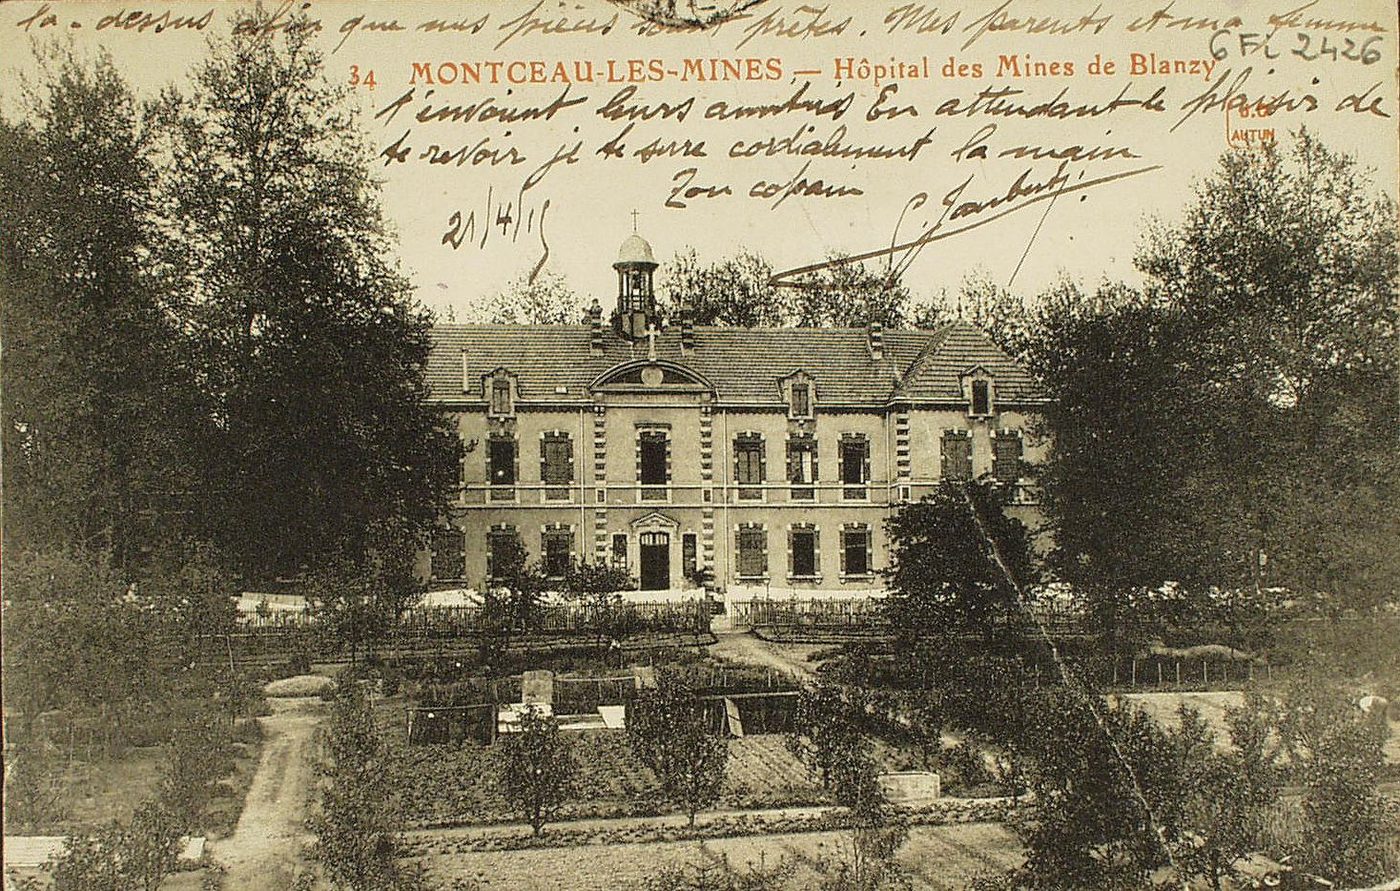 la-dessus afin que nus pièces soient prêtes. Mes parents et ma femme
6 Fi 2426
34 MONTCEAU-LES-MINES. — Hôpital des Mines de Blanzy
t'envoient leurs amitiés En attendant le plaisir de
B.G
AUTUN
te revoir je te serre cordialement la main
Ton copain
21/4/15